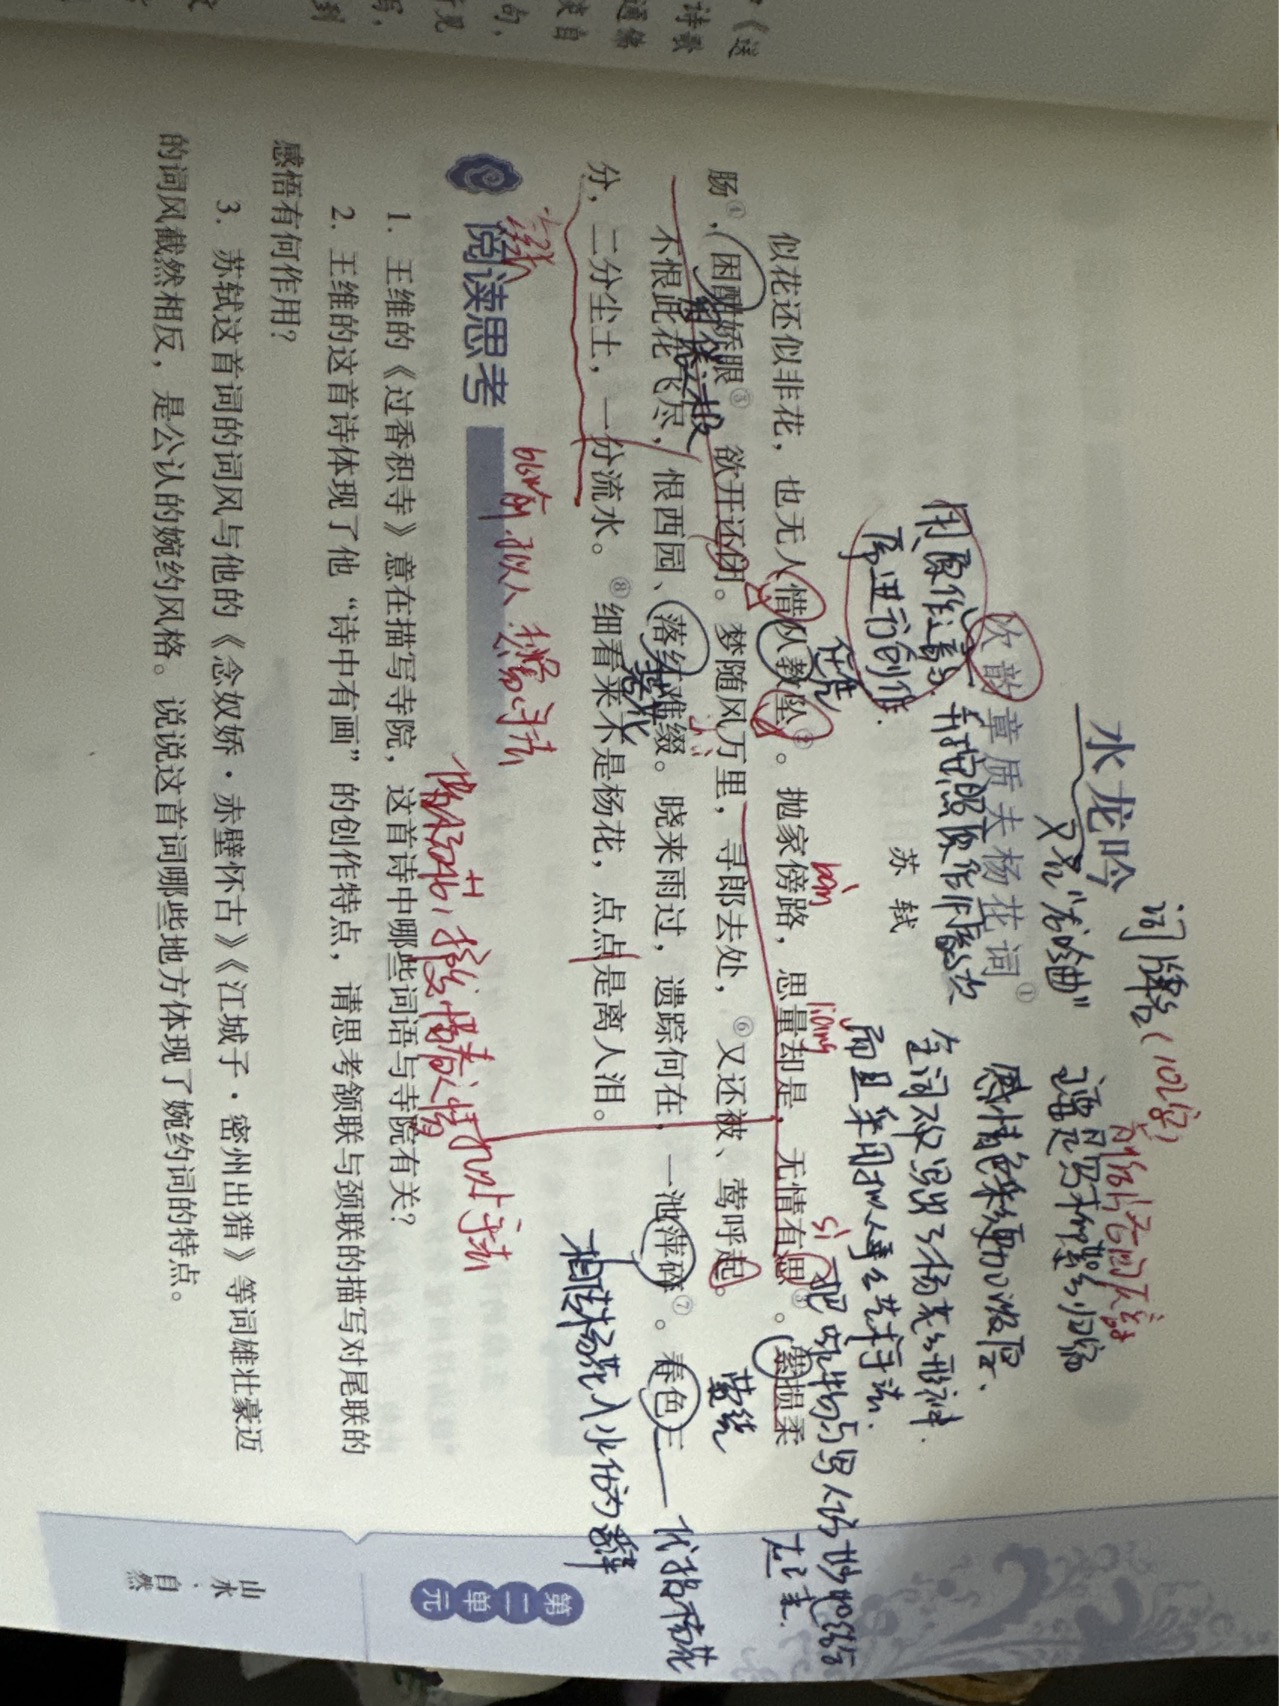 水龙吟
次韵章质夫杨花词①
苏轼
似花还似非花，也无人惜从教坠②。抛家傍路，思量却是，无情有思③。萦损柔
肠④，困酣娇眼⑤，欲开还闭。梦随风万里，寻郎去处，⑥又还被、莺呼起。
不恨此花飞尽，恨西园、落红难缀。晓来雨过，遗踪何在，一池萍碎⑦。春色三
分，二分尘土，一分流水。⑧细看来不是杨花，点点是离人泪。
阅读思考
1. 王维的《过香积寺》意在描写寺院，这首诗中哪些词语与寺院有关？
2. 王维的这首诗体现了他“诗中有画”的创作特点，请思考颔联与颈联的描写对尾联的
感悟有何作用？
3. 苏轼这首词的词风与他的《念奴娇·赤壁怀古》《江城子·密州出猎》等词雄壮豪迈
的词风截然相反，是公认的婉约风格。说说这首词哪些地方体现了婉约词的特点。
第二单元
山水、自然
词牌名(102字)
又名“龙吟曲”
用原作之韵 并按照原作用韵次
序进行创作.
全词不仅写出了杨花的形神.
而且采用拟人的艺术手法.
把咏物与写人巧妙地结合
起来.
任凭
bàng
liáng
sì
萦绕
代指杨花
相传杨花入水化为浮萍
比喻.拟人